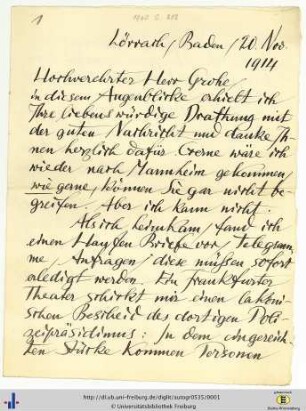 1
Lörrach / Baden / 20 Nov.
1914
Hochverehrter Herr Grohe,
in diesem Augenblicke erhielt ich
Ihre liebenswürdige Drahtung mit
der guten Nachricht und danke Ih-
nen herzlich dafür. Gerne wäre ich
wieder nach Mannheim gekommen,
wie gerne, können Sie gar nicht be-
greifen. Aber ich kann nicht.
Als ich heimkam, fand ich
einen Haufen Briefe vor, Telegram-
me, Anfragen, diese müssen sofort
erledigt werden. Ein Frankfurter
Theater schickt mir einen lakoni-
schen Bescheid des dortigen Poli-
zeipräsidiums: In dem eingereich-
ten Stücke kommen Personen
http://dl.ub.uni-freiburg.de/diglit/autogr0535/0001
© Universitätsbibliothek Freiburg